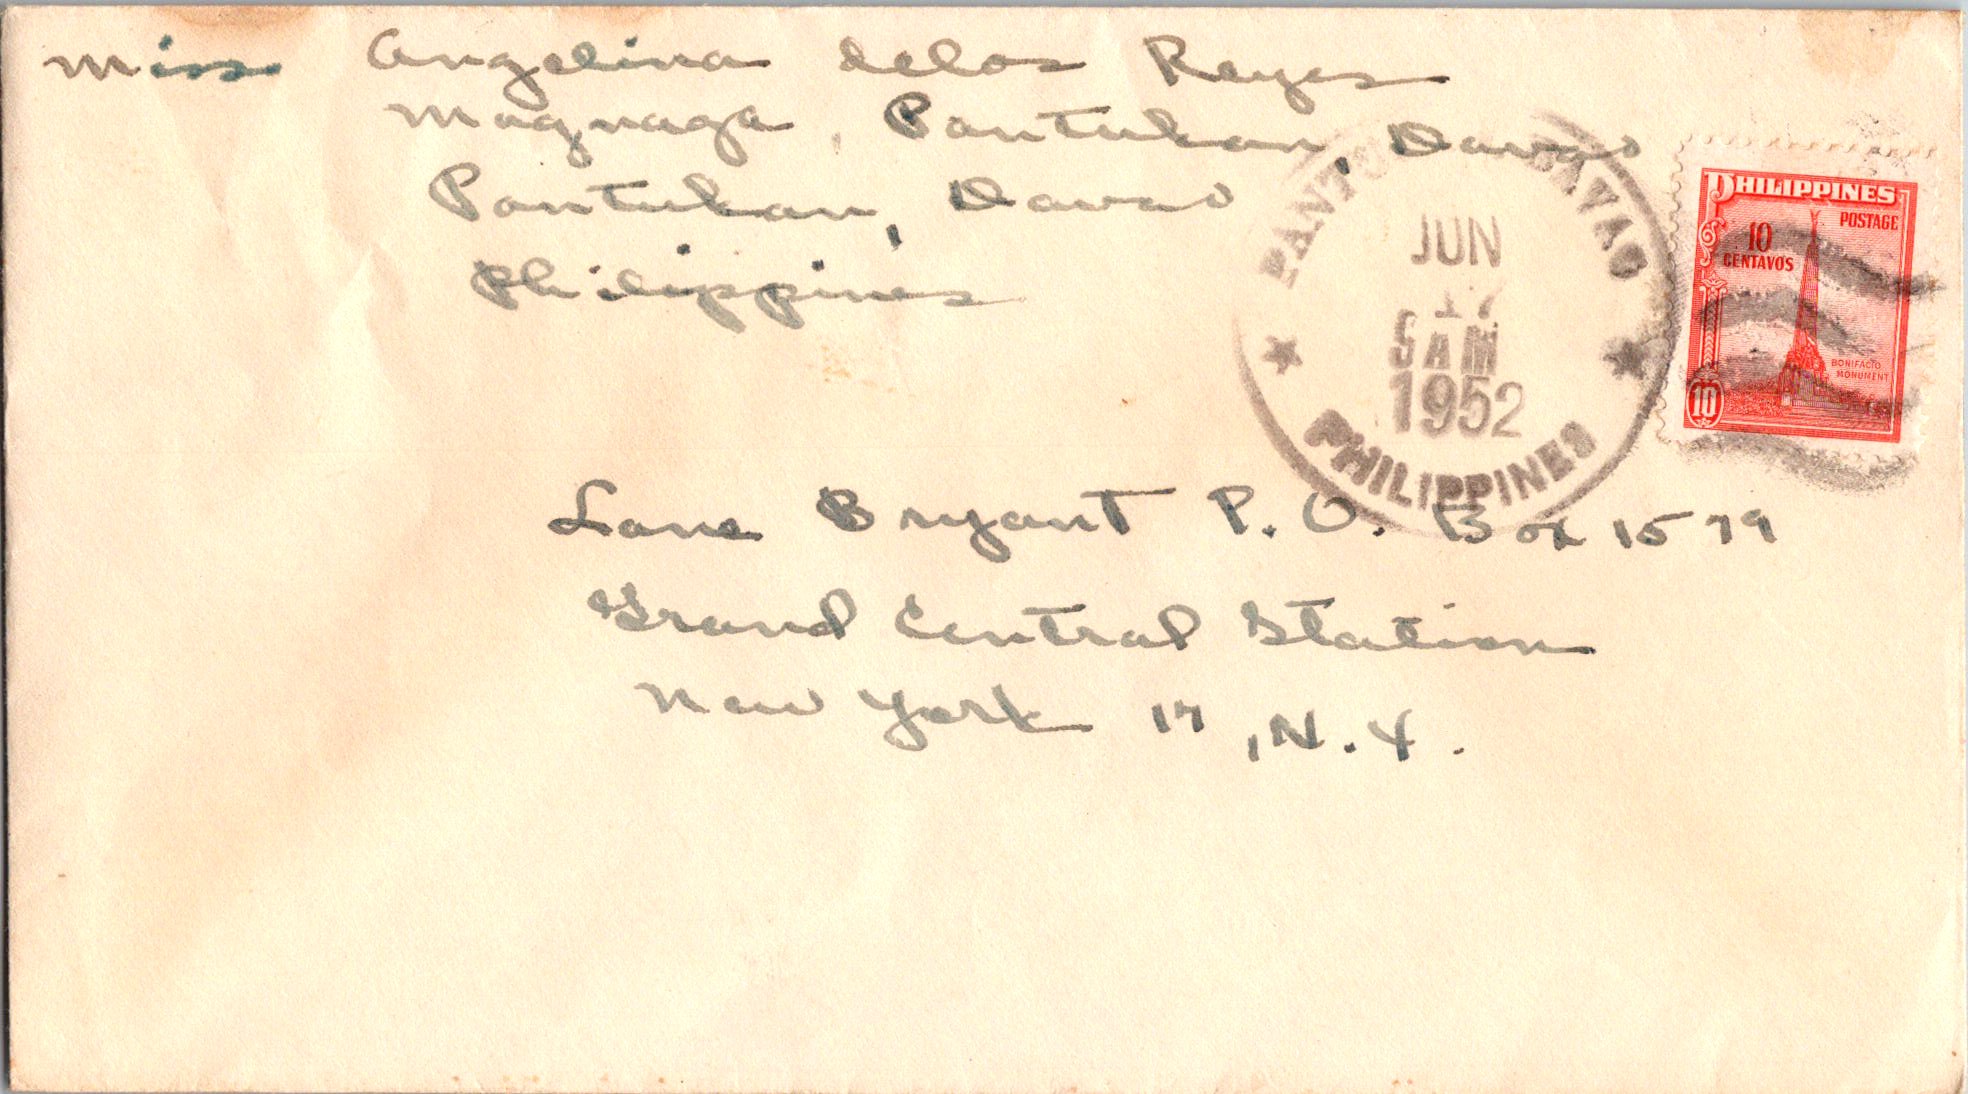 Miss Angelina delos Reyes
Magnaga, Pantukan, Davao
Pantukan, Davao
Philippines
DAVAO
JUN
17
5 AM
1952
PHILIPPINES
PHILIPPINES
POSTAGE
10
CENTAVOS
BONIFACIO
MONUMENT
10
Lane Bryant P. O. Box 1579
Grand Central Station
New York 17, N. Y.